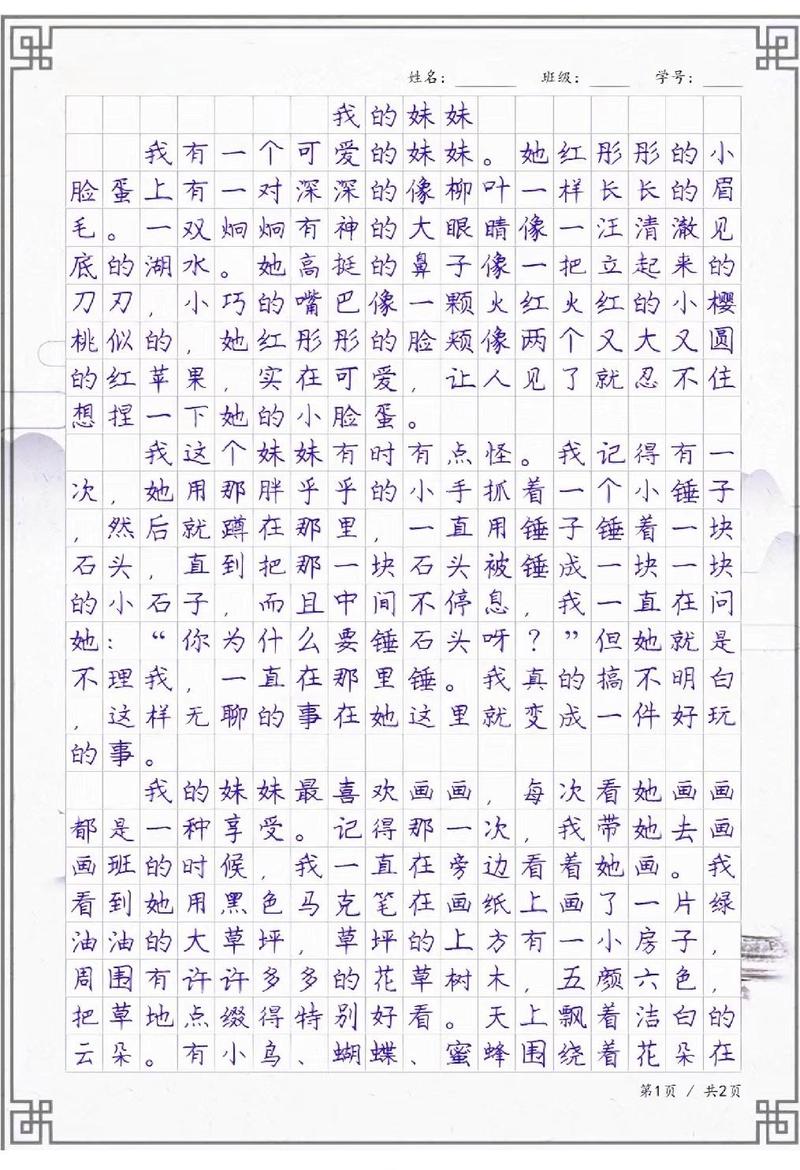 姓名：______ 班级：____ 学号：____
我的妹妹
我有一个可爱的妹妹。她红彤彤的小
脸蛋上有一对深深的像柳叶一样长长的眉
毛。一双炯炯有神的大眼睛像一汪清澈见
底的湖水。她高挺的鼻子像一把立起来的
刀刃，小巧的嘴巴像一颗火红火红的小樱
桃似的，她红彤彤的脸颊像两个又大又圆
的红苹果，实在可爱，让人见了就忍不住
想捏一下她的小脸蛋。
我这个妹妹有时有点怪。我记得有一
次，她用那胖乎乎的小手抓着一个小锤子
，然后就蹲在那里，一直用锤子锤着一块
石头，直到把那一块石头被锤成一块一块
的小石子，而且中间不停息，我一直在问
她：“你为什么要锤石头呀？”但她就是
不理我，一直在那里锤。我真的搞不明白
，这样无聊的事在她这里就变成一件好玩
的事。
我的妹妹最喜欢画画，每次看她画画
都是一种享受。记得那一次，我带她去画
画班的时候，我一直在旁边看着她画。我
看到她用黑色马克笔在画纸上画了一片绿
油油的大草坪，草坪的上方有一小房子，
周围有许许多多的花草树木，五颜六色，
把草地点缀得特别好看。天上飘着洁白的
云朵。有小鸟、蝴蝶、蜜蜂围绕着花朵在
第1页 / 共2页